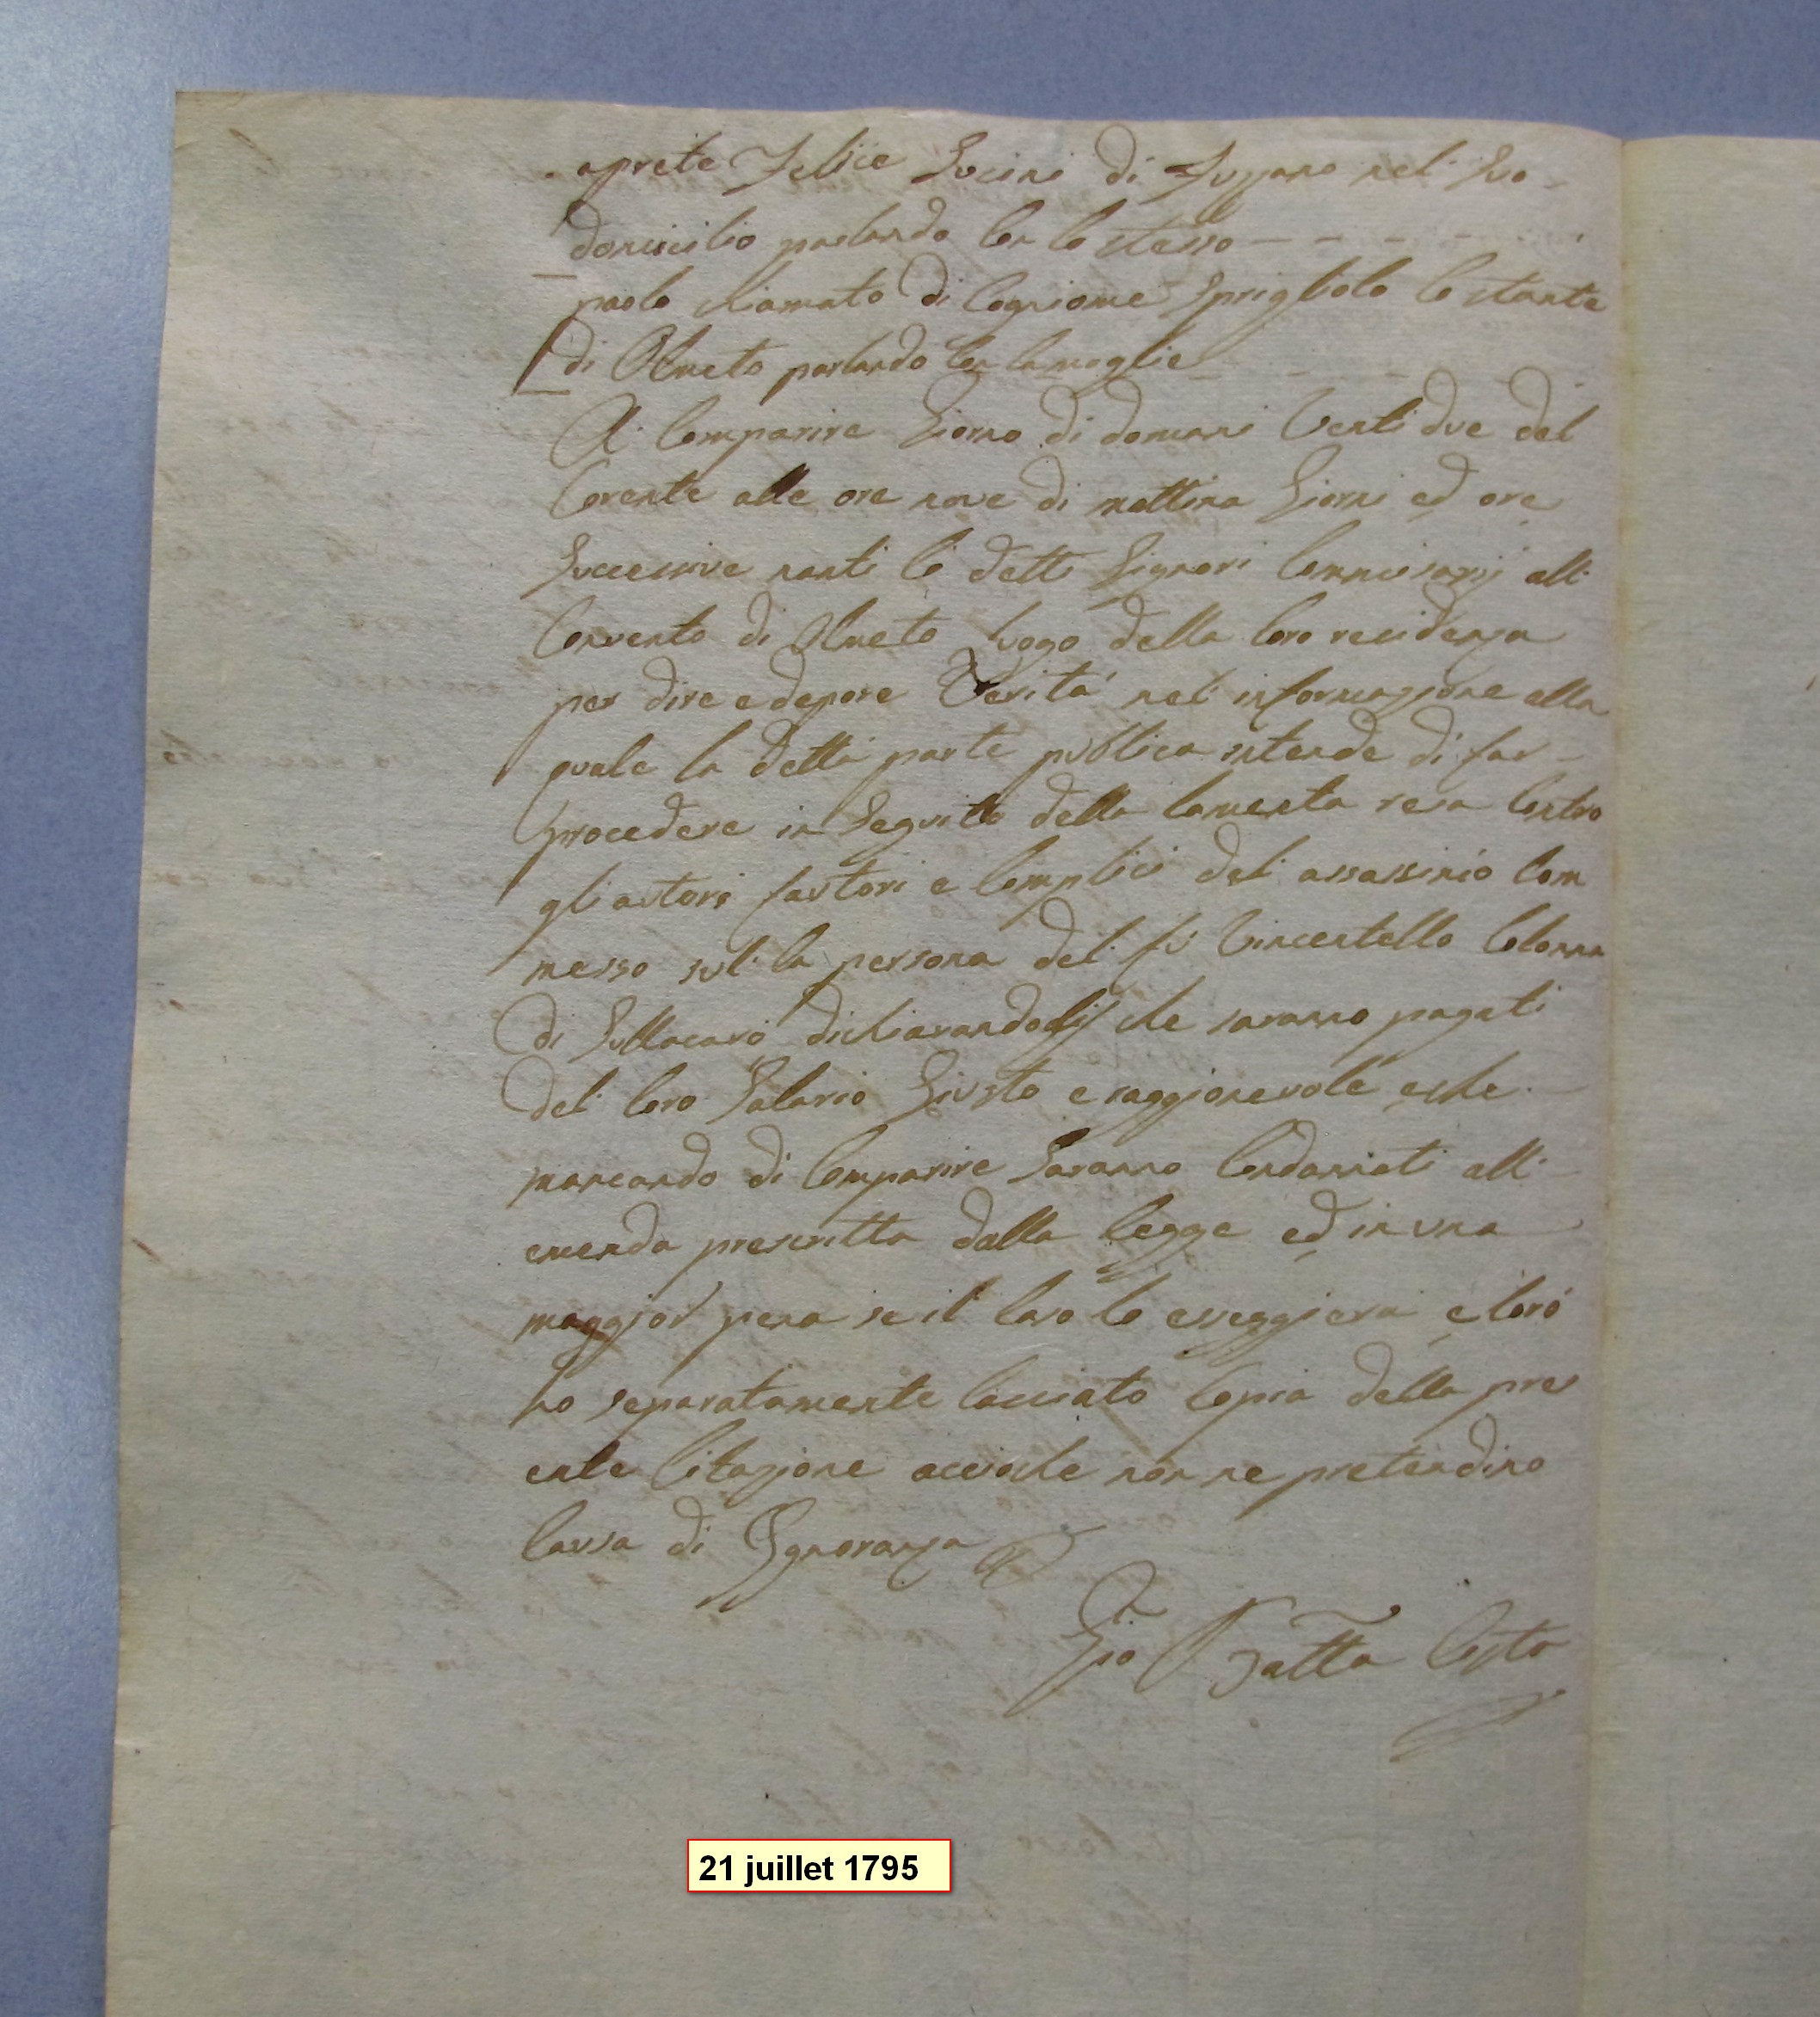 aprete Felice Socini di Fozzano nel Suo
domicilio parlando Con lo stesso
paolo chiamato di Cogniome Sprigliolo Costante
di Olmeto parlando Con la moglie
A Comparire Giorno di domani Venti due del
Corente alle ore nove di mattina Giorni ed ore
Successive nanti li detti Signori Commissarij all
Convento di Olmeto luogo della loro residenza
per dire e depore Verità nel informazione alla
quale la detta parte publica intende di far
procedere in Seguito della lamenta resa Contro
gli autori fautori e Complici del assassinio Com
messo sul la persona del fù Vincentello Colonna
di Sollacarò dichiarando che saranno pagati
del loro Salario Giusto e raggionevole e che
mancando di Comparire Saranno Condannati all
emenda prescritta dalla legge ed in una
maggior pena se il Caso lo esseggierà e loro
ho separatamente lacciato Copia della pres
ente Citazione acciochè non ne pretendino
Causa di Ignoranza
Gio Batta Costa
21 juillet 1795